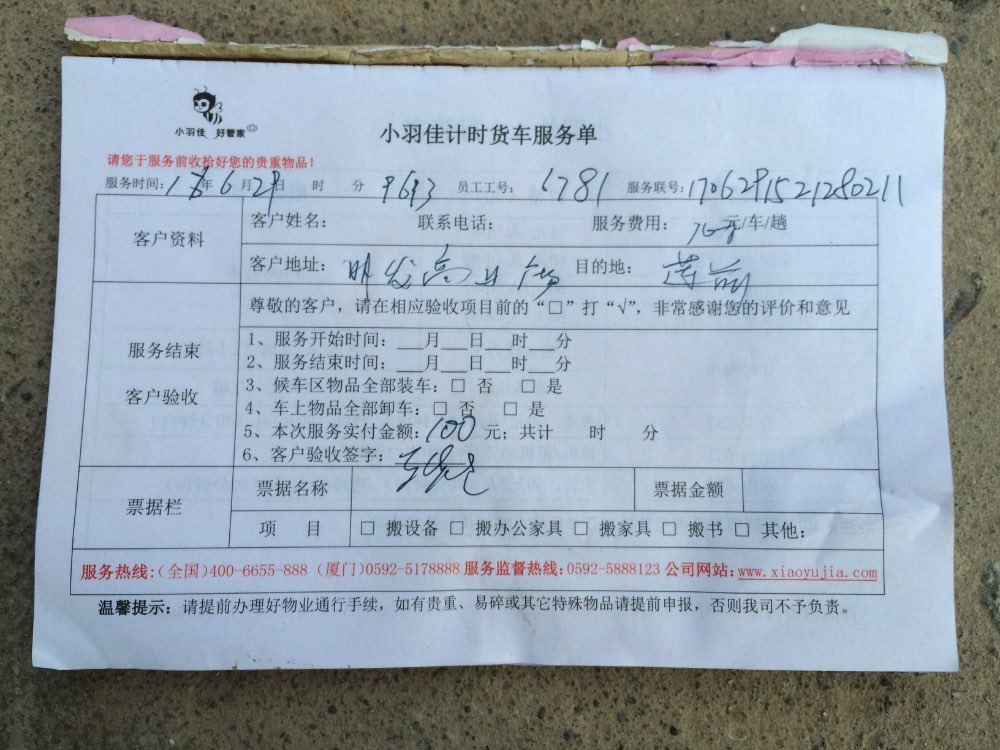 小羽佳 好管家
小羽佳计时货车服务单
请您于服务前收拾好您的贵重物品！
服务时间： 年 6 月 29 日 时 分 9693 员工工号： 6781 服务联号：1706291521280211
客户资料
客户姓名： 联系电话： 服务费用： 元/车/趟
客户地址：明发商业广场 目的地：莲前
尊敬的客户，请在相应验收项目前的“□”打“√”，非常感谢您的评价和意见
服务结束
客户验收
1、服务开始时间：___月___日___时___分
2、服务结束时间：___月___日___时___分
3、候车区物品全部装车：□ 否 □ 是
4、车上物品全部卸车：□ 否 □ 是
5、本次服务实付金额：100 元；共计 时 分
6、客户验收签字：
票据栏
票据名称 票据金额
项 目 □ 搬设备 □ 搬办公家具 □ 搬家具 □ 搬书 □ 其他：
服务热线：（全国）400-6655-888（厦门）0592-5178888 服务监督热线：0592-5888123 公司网站：www.xiaoyujia.com
温馨提示：请提前办理好物业通行手续，如有贵重、易碎或其它特殊物品请提前申报，否则我司不予负责。